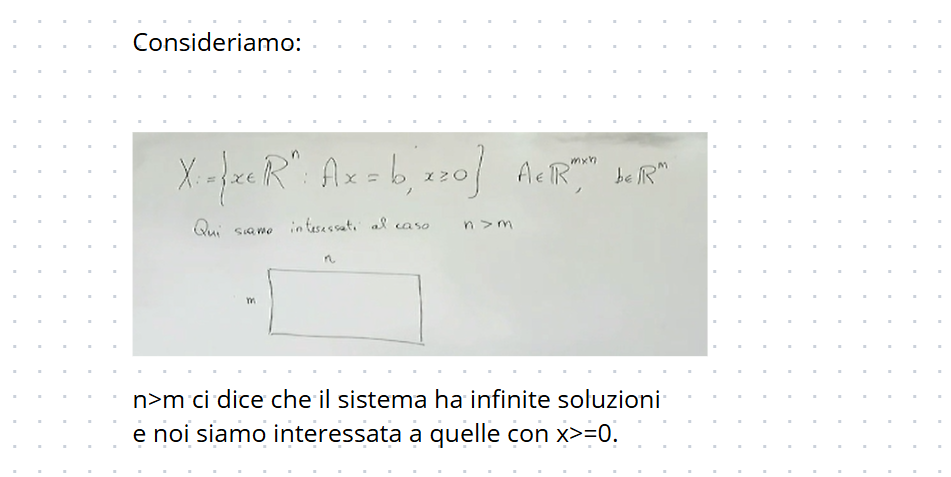 Consideriamo:
X:={x∈ℝⁿ : Ax = b, x≥0} A∈ℝᵐˣⁿ, b∈ℝᵐ
Qui siamo interessati al caso n>m
n
m
n>m ci dice che il sistema ha infinite soluzioni
e noi siamo interessata a quelle con x>=0.